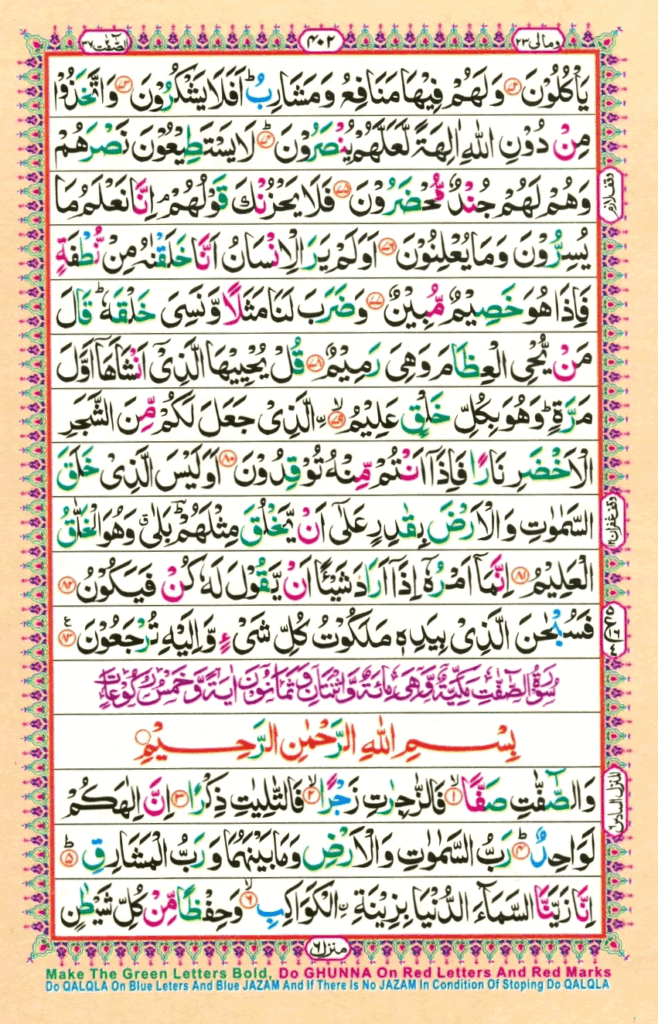 ومالی ٢٣
٤٠٢
الصّٰفّٰت ٣٧
يَاْكُلُوْنَ ﴿٧٢﴾ وَلَهُمْ فِيْهَا مَنَافِعُ وَمَشَارِبُ ؕ اَفَلَا يَشْكُرُوْنَ ﴿٧٣﴾ وَاتَّخَذُوْا
مِنْ دُوْنِ اللّٰهِ اٰلِهَةً لَّعَلَّهُمْ يُنْصَرُوْنَ ﴿٧٤﴾ؕ لَا يَسْتَطِيْعُوْنَ نَصْرَهُمْ
وَهُمْ لَهُمْ جُنْدٌ مُّحْضَرُوْنَ ﴿٧٥﴾ فَلَا يَحْزُنْكَ قَوْلُهُمْ ۘ اِنَّا نَعْلَمُ مَا
وقف لازم
يُسِرُّوْنَ وَمَا يُعْلِنُوْنَ ﴿٧٦﴾ اَوَلَمْ يَرَ الْاِنْسَانُ اَنَّا خَلَقْنٰهُ مِنْ نُّطْفَةٍ
فَاِذَا هُوَ خَصِيْمٌ مُّبِيْنٌ ﴿٧٧﴾ وَضَرَبَ لَنَا مَثَلًا وَّنَسِيَ خَلْقَهٗ ؕ قَالَ
مَنْ يُّحْيِ الْعِظَامَ وَهِيَ رَمِيْمٌ ﴿٧٨﴾ قُلْ يُحْيِيْهَا الَّذِيْٓ اَنْشَاَهَاۤ اَوَّلَ
مَرَّةٍ ؕ وَهُوَ بِكُلِّ خَلْقٍ عَلِيْمُ ﴿٧٩﴾ۙ ۨ الَّذِيْ جَعَلَ لَكُمْ مِّنَ الشَّجَرِ
الْاَخْضَرِ نَارًا فَاِذَاۤ اَنْتُمْ مِّنْهُ تُوْقِدُوْنَ ﴿٨٠﴾ اَوَلَيْسَ الَّذِيْ خَلَقَ
السَّمٰوٰتِ وَالْاَرْضَ بِقٰدِرٍ عَلٰٓى اَنْ يَّخْلُقَ مِثْلَهُمْ ؕ بَلٰى ۗ وَهُوَ الْخَلّٰقُ
وقف غفران
الْعَلِيْمُ ﴿٨١﴾ اِنَّمَاۤ اَمْرُهٗۤ اِذَاۤ اَرَادَ شَيْـًٔا اَنْ يَّقُوْلَ لَهٗ كُنْ فَيَكُوْنُ ﴿٨٢﴾
فَسُبْحٰنَ الَّذِيْ بِيَدِهٖ مَلَكُوْتُ كُلِّ شَيْءٍ وَّاِلَيْهِ تُرْجَعُوْنَ ﴿٨٣﴾
سُوْرَةُ الصّٰٓفّٰتِ مَكِّيَّةٌ وَّهِيَ مِائَةٌ وَّاثْنَتَانِ وَثَمَانُوْنَ اٰيَةً وَّخَمْسُ رُكُوْعَاتٍ
بِسْمِ اللّٰهِ الرَّحْمٰنِ الرَّحِيْمِ
وَالصّٰٓفّٰتِ صَفًّا ﴿١﴾ۙ فَالزّٰجِرٰتِ زَجْرًا ﴿٢﴾ۙ فَالتّٰلِيٰتِ ذِكْرًا ﴿٣﴾ۙ اِنَّ اِلٰهَكُمْ
المنزل السادس
لَوَاحِدٌ ﴿٤﴾ؕ رَبُّ السَّمٰوٰتِ وَالْاَرْضِ وَمَا بَيْنَهُمَا وَرَبُّ الْمَشَارِقِ ﴿٥﴾ؕ
اِنَّا زَيَّنَّا السَّمَآءَ الدُّنْيَا بِزِيْنَةِ ۨ الْكَوَاكِبِ ﴿٦﴾ۙ وَحِفْظًا مِّنْ كُلِّ شَيْطٰنٍ
منزل ٦
Make The Green Letters Bold, Do GHUNNA On Red Letters And Red Marks
Do QALQLA On Blue Leters And Blue JAZAM And If There Is No JAZAM In Condition Of Stoping Do QALQLA